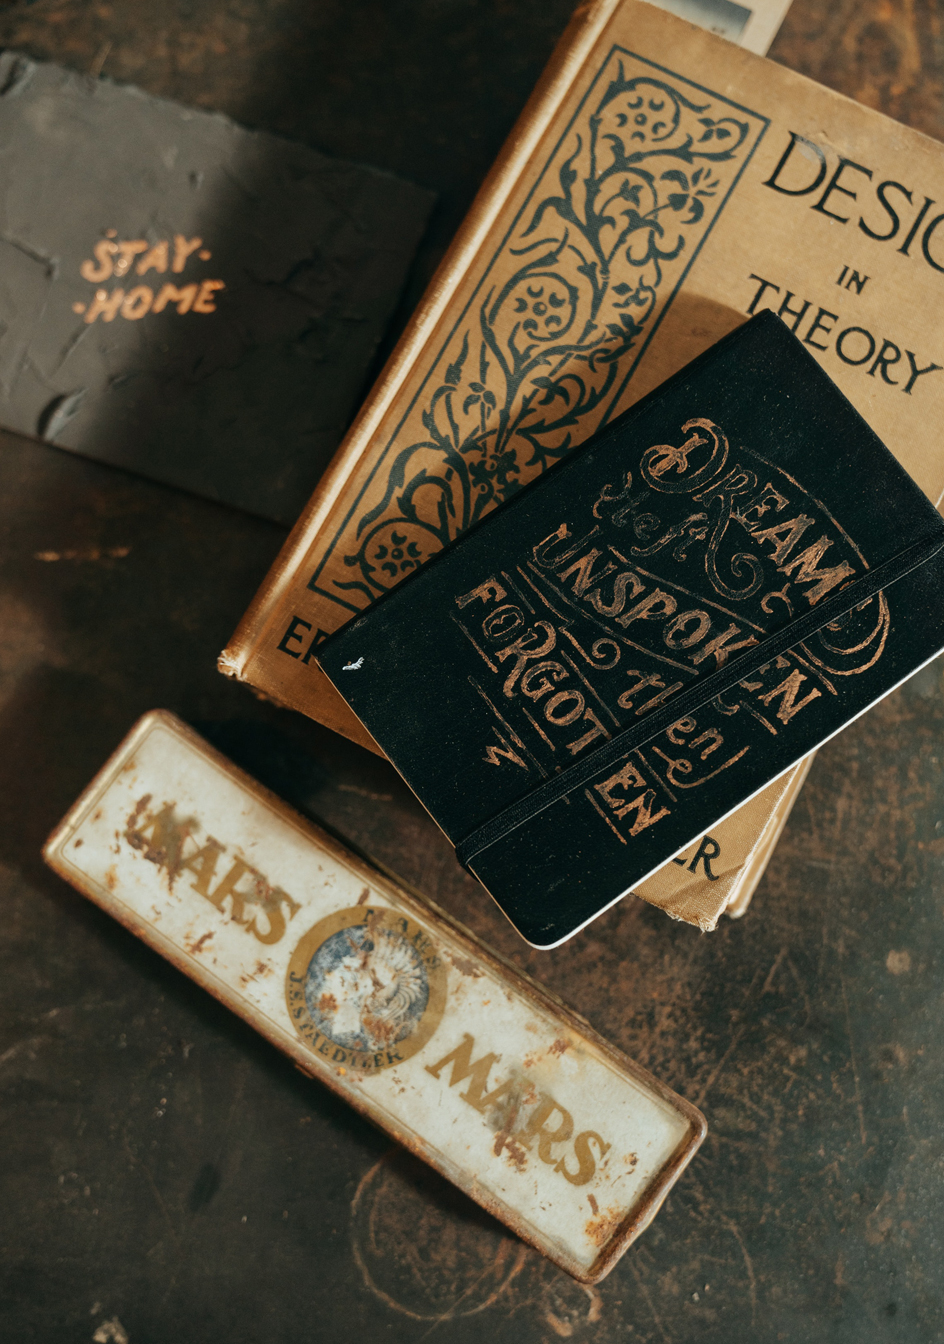 STAY·
·HOME
DESIG
IN
THEORY
ER
ER
DREAMS
left
UNSPOKEN
FORGOT
then
EN
MARS
MARS
MARS
J.S.STAEDTLER